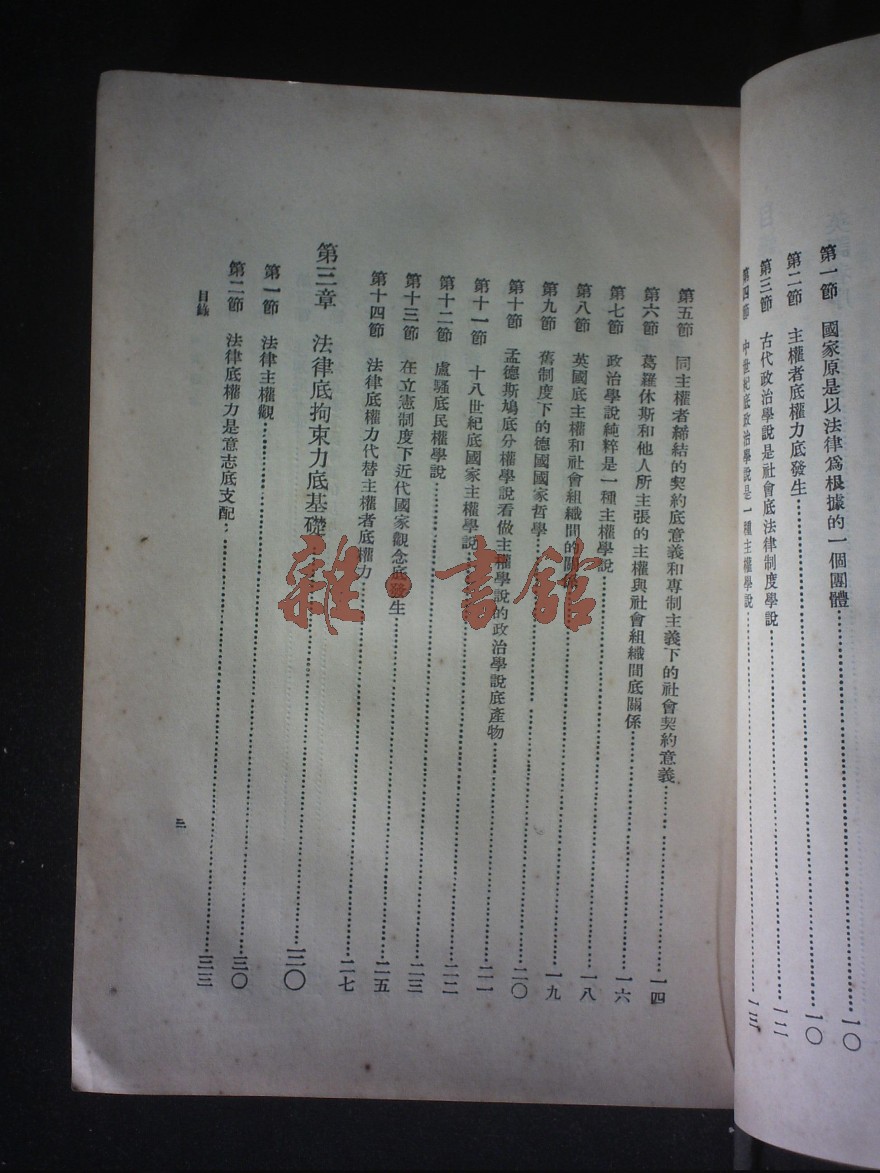 第一節 國家原是以法律爲根據的一個團體……一〇
第二節 主權者底權力底發生……一〇
第三節 古代政治學說是社會底法律制度學說……一二
第四節 中世紀底政治學說是一種主權學說……一三
第五節 同主權者締結的契約底意義和專制主義下的社會契約意義……一四
第六節 葛羅休斯和他人所主張的主權與社會組織間底關係……一六
第七節 政治學說純粹是一種主權學說……一八
第八節 英國底主權和社會組織間的關係……一九
第九節 舊制度下的德國國家哲學……二〇
第十節 孟德斯鳩底分權學說看做主權學說的政治學說底產物……二一
第十一節 十八世紀底國家主權學說……二二
第十二節 盧騷底民權學說……二三
第十三節 在立憲制度下近代國家觀念底發生……二五
第十四節 法律底權力代替主權者底權力……二七
第三章 法律底拘束力底基礎……三〇
第一節 法律主權觀……三〇
第二節 法律底權力是意志底支配……三三
目錄
二
雜·書館